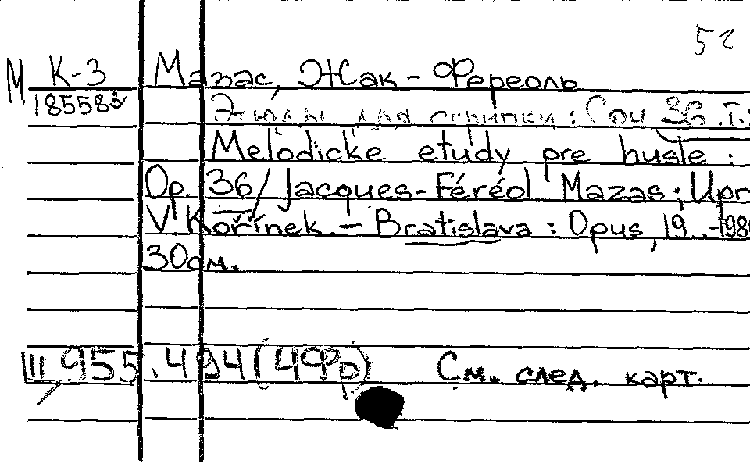 52
М К-3 Мазас, Жак-Фереоль
185583 Этюды для скрипки: Соч 36. Т.
Melodické etudy pre husle :
Op. 36/ Jacques-Féréol Mazas; Upr
V Kořínek. - Bratislava : Opus, 19..-198
30см.
Ш 955.494(49Ф) См. след. карт.